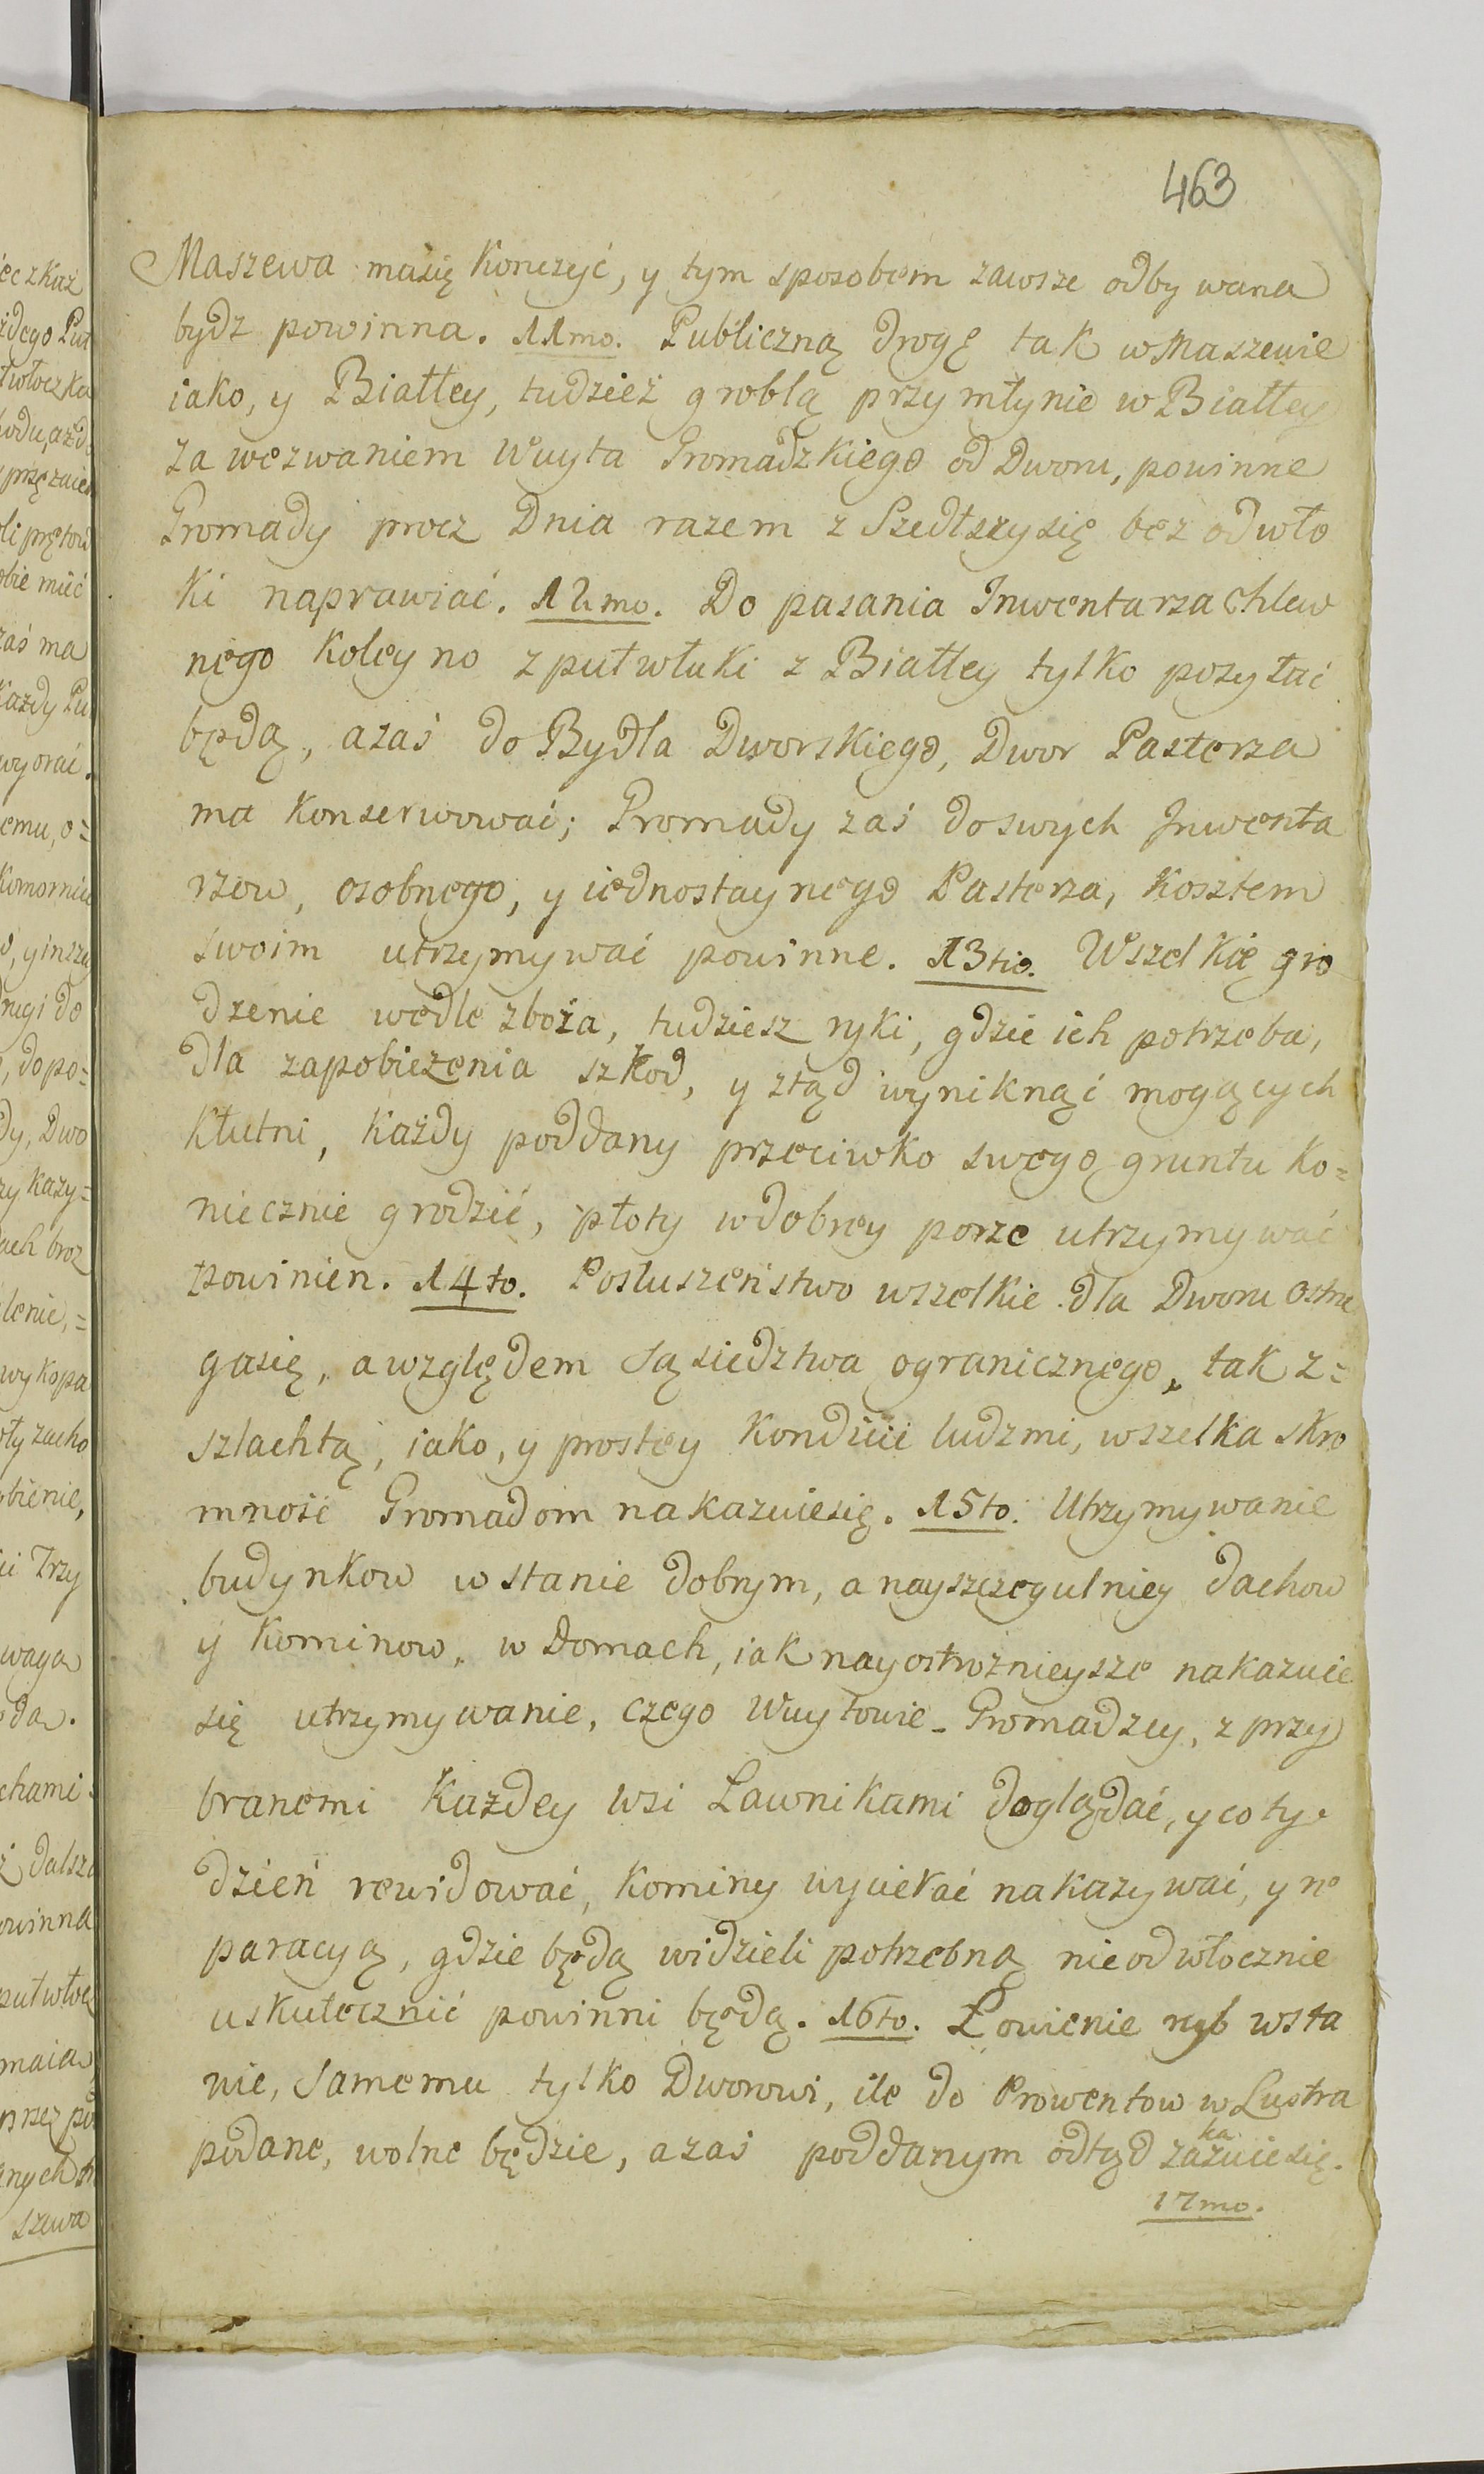 463
Maszewa masię Konczyć, y tym sposobem zawsze odbywana
bydz powinna. 11mo. Publiczną drogę tak w Maszewie
iako, y Białłey, tudzież groblą przy młynie w Białłey
za wezwaniem Wuyta Gromadzkiego od Dworu, powinne
Gromady procz Dnia razem z Szedłszysię bez odwło
ki naprawiać. 12mo. Do pasania Inwentarza Chlew
nego Koleyno z pułwłuki z Białłey tylko posyłać
będą, azaś do Bydła Dworskiego, Dwor Pasterza
ma Konserwować; Gromady zaś do swych Inwenta
rzow, osobnego, y iednostaynego Pasterza, Kosztem
swoim utrzymywać powinne. 13tio. Wszelkie gro
dzenie wedle zboża, tudziesz ryki, gdzie ich potrzeba,
dla zapobieżenia szkod, y ztąd wyniknąć mogących
Kłutni, Każdy poddany przeciwko swego gruntu Ko=
niecznie grodzić, płoty w dobrey porze utrzymywać
powinien. 14to. Posłuszeństwo wszelkie dla Dworu Ostrze
gasię, a względem Sąsiedztwa ogranicznego, tak z=
szlachtą, iako, y prostey Kondicii ludzmi, wszelka skro
mność Gromadom nakazuiesię. 15to. Utrzymywanie
budynkow w stanie dobrym, a nayszczegulniey dachow
y Kominow, w Domach, iak nayostrożnieysze nakazuie
się utrzymywanie, czego Wuytowie Gromadzcy, z przy
branemi Każdey wsi Ławnikami doglądać, y co ty
dzień rewidować, Kominy wycierać nakazywać, y re
paracyą, gdzie będą widzieli potrzebną nieodwłocznie
uskutecznić powinni będą. 16to. Łowienie ryb wsta
wie, Samemu tylko Dworowi, ile do Prowentow w Lustra
podane, wolne będzie, azaś poddanym odtąd zakazuiesię.
17mo.